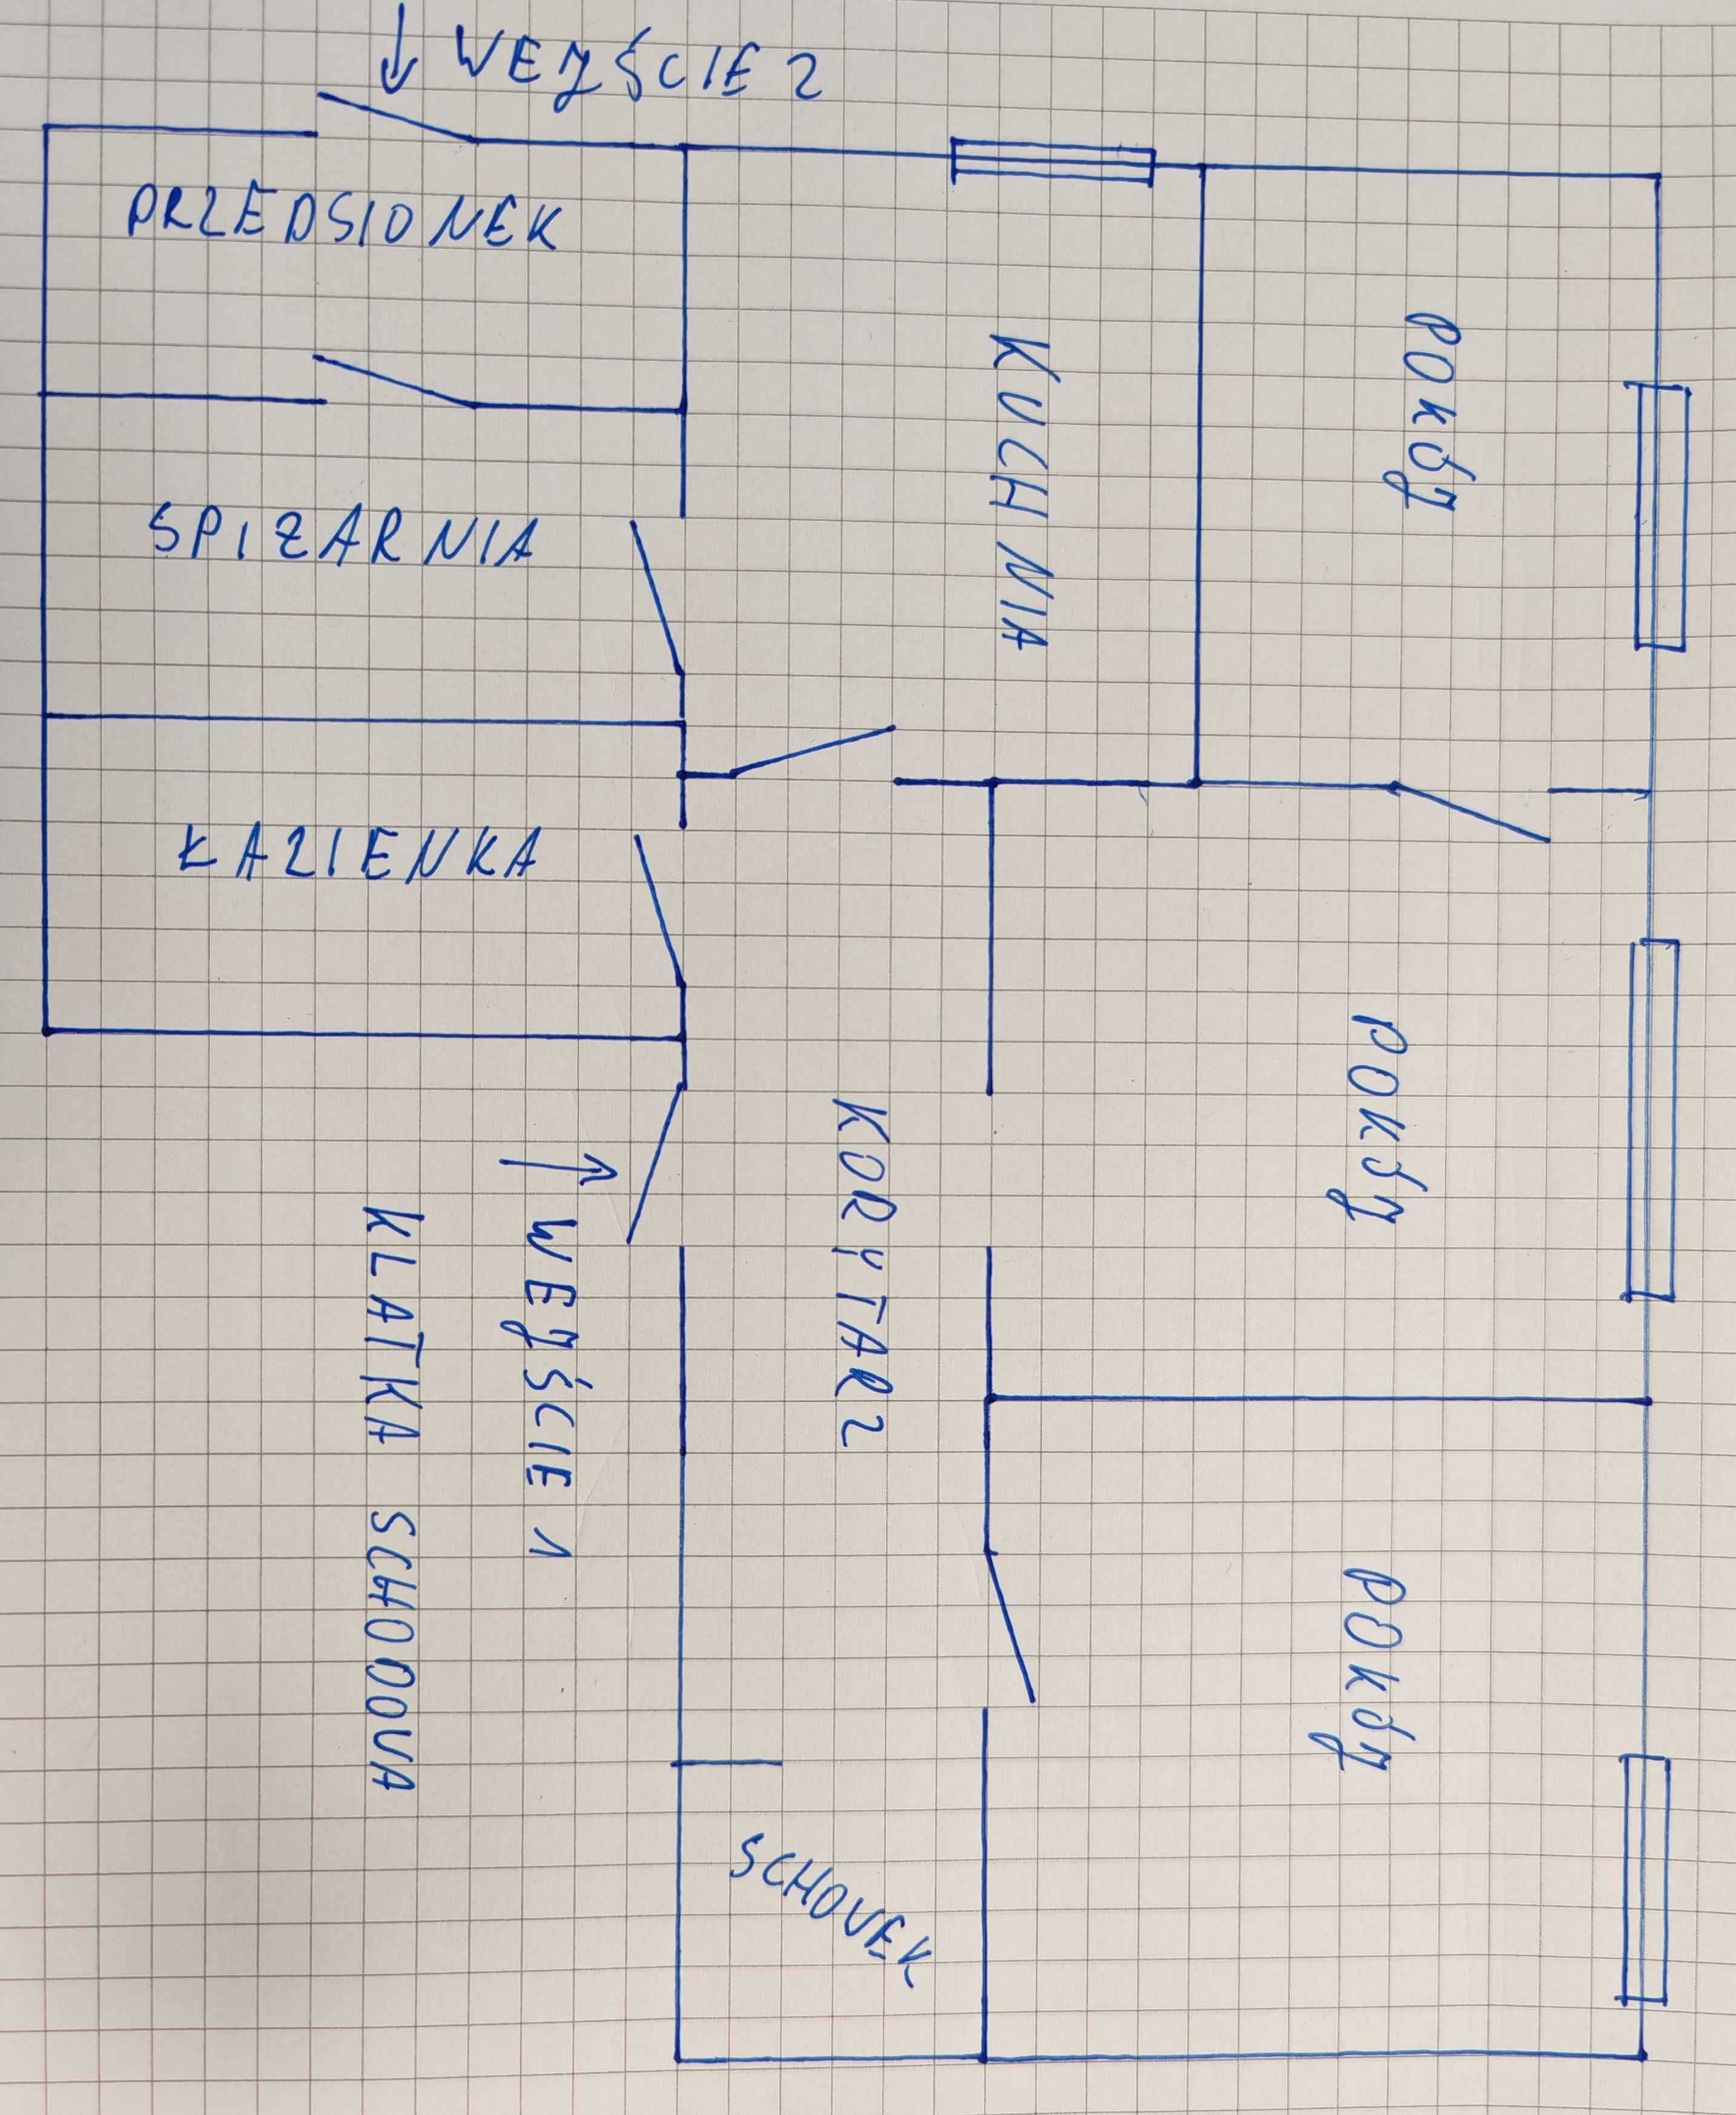 WEJŚCIE 2
PRZEDSIONEK
SPIŻARNIA
ŁAZIENKA
KUCHNIA
POKÓJ
POKÓJ
POKÓJ
KORYTARZ
WEJŚCIE 1
KLATKA SCHODOWA
SCHOWEK